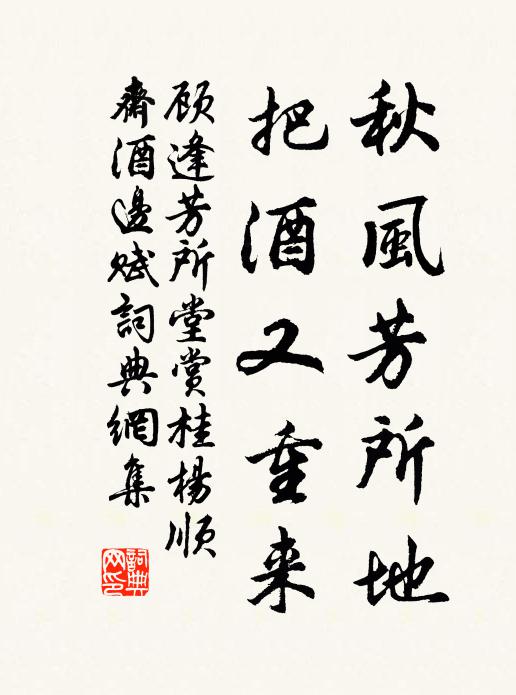 秋風芳所地
把酒又重来
顾逢芳所堂賞桂楊順
齋酒邊赋詞典網集
詞典
网印